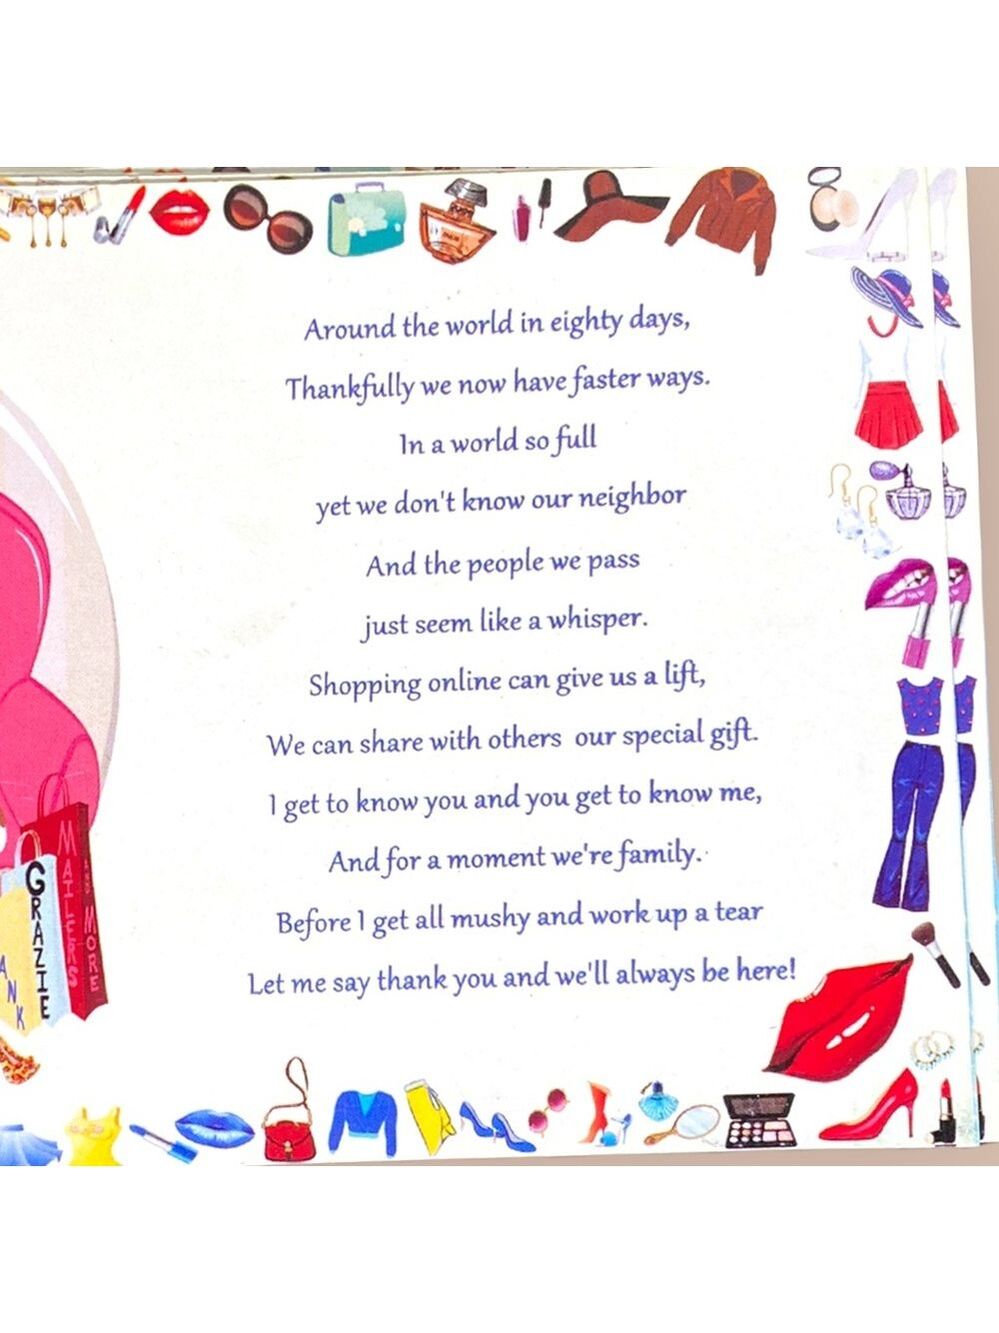 Around the world in eighty days,
Thankfully we now have faster ways.
In a world so full
yet we don't know our neighbor
And the people we pass
just seem like a whisper.
Shopping online can give us a lift,
We can share with others our special gift.
I get to know you and you get to know me,
And for a moment we're family.
Before I get all mushy and work up a tear
Let me say thank you and we'll always be here!
GRAZIE
MAILERS
MORE